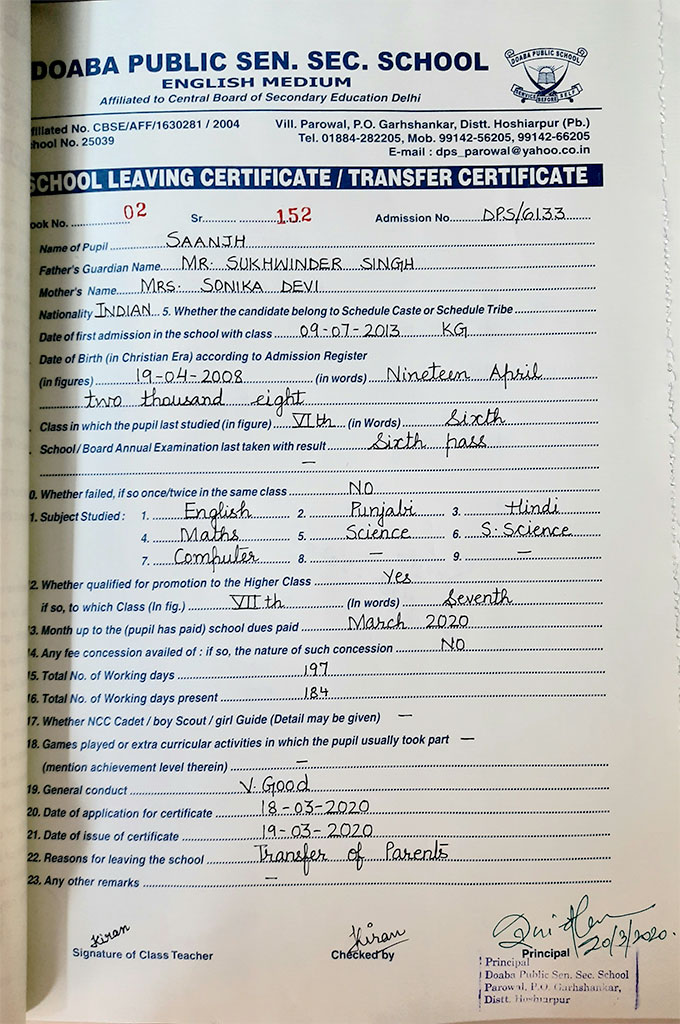 DOABA PUBLIC SEN. SEC. SCHOOL
DOABA PUBLIC SCHOOL
SERVICE BEFORE SELF
ENGLISH MEDIUM
Affiliated to Central Board of Secondary Education Delhi
filiated No. CBSE/AFF/1630281 / 2004
Vill. Parowal, P.O. Garhshankar, Distt. Hoshiarpur (Pb.)
hool No. 25039
Tel. 01884-282205, Mob. 99142-56205, 99142-66205
E-mail : dps_parowal@yahoo.co.in
SCHOOL LEAVING CERTIFICATE / TRANSFER CERTIFICATE
ook No. 02 Sr. 152 Admission No. DPS/6133
Name of Pupil SAANJH
Father's Guardian Name MR. SUKHWINDER SINGH
Mother's Name MRS. SONIKA DEVI
Nationality INDIAN 5. Whether the candidate belong to Schedule Caste or Schedule Tribe
Date of first admission in the school with class 09-07-2013 KG
Date of Birth (in Christian Era) according to Admission Register
(in figures) 19-04-2008 (in words) Nineteen April
two thousand eight
Class in which the pupil last studied (in figure) VIth (in Words) Sixth
School/Board Annual Examination last taken with result Sixth pass
—
0. Whether failed, if so once/twice in the same class NO
1. Subject Studied : 1. English 2. Punjabi 3. Hindi
4. Maths 5. Science 6. S. Science
7. Computer 8. — 9. —
2. Whether qualified for promotion to the Higher Class Yes
if so, to which Class (In fig.) VIIth (In words) Seventh
3. Month up to the (pupil has paid) school dues paid March 2020
14. Any fee concession availed of : if so, the nature of such concession NO
15. Total No. of Working days 197
16. Total No. of Working days present 184
17. Whether NCC Cadet / boy Scout / girl Guide (Detail may be given) —
18. Games played or extra curricular activities in which the pupil usually took part —
(mention achievement level therein) —
19. General conduct V. Good
20. Date of application for certificate 18-03-2020
21. Date of issue of certificate 19-03-2020
22. Reasons for leaving the school Transfer of Parents
23. Any other remarks —
Kiran Kiran
Signature of Class Teacher Checked by Principal 20/3/2020.
Principal
Doaba Public Sen. Sec. School
Parowal, P.O. Garhshankar,
Distt. Hoshiarpur